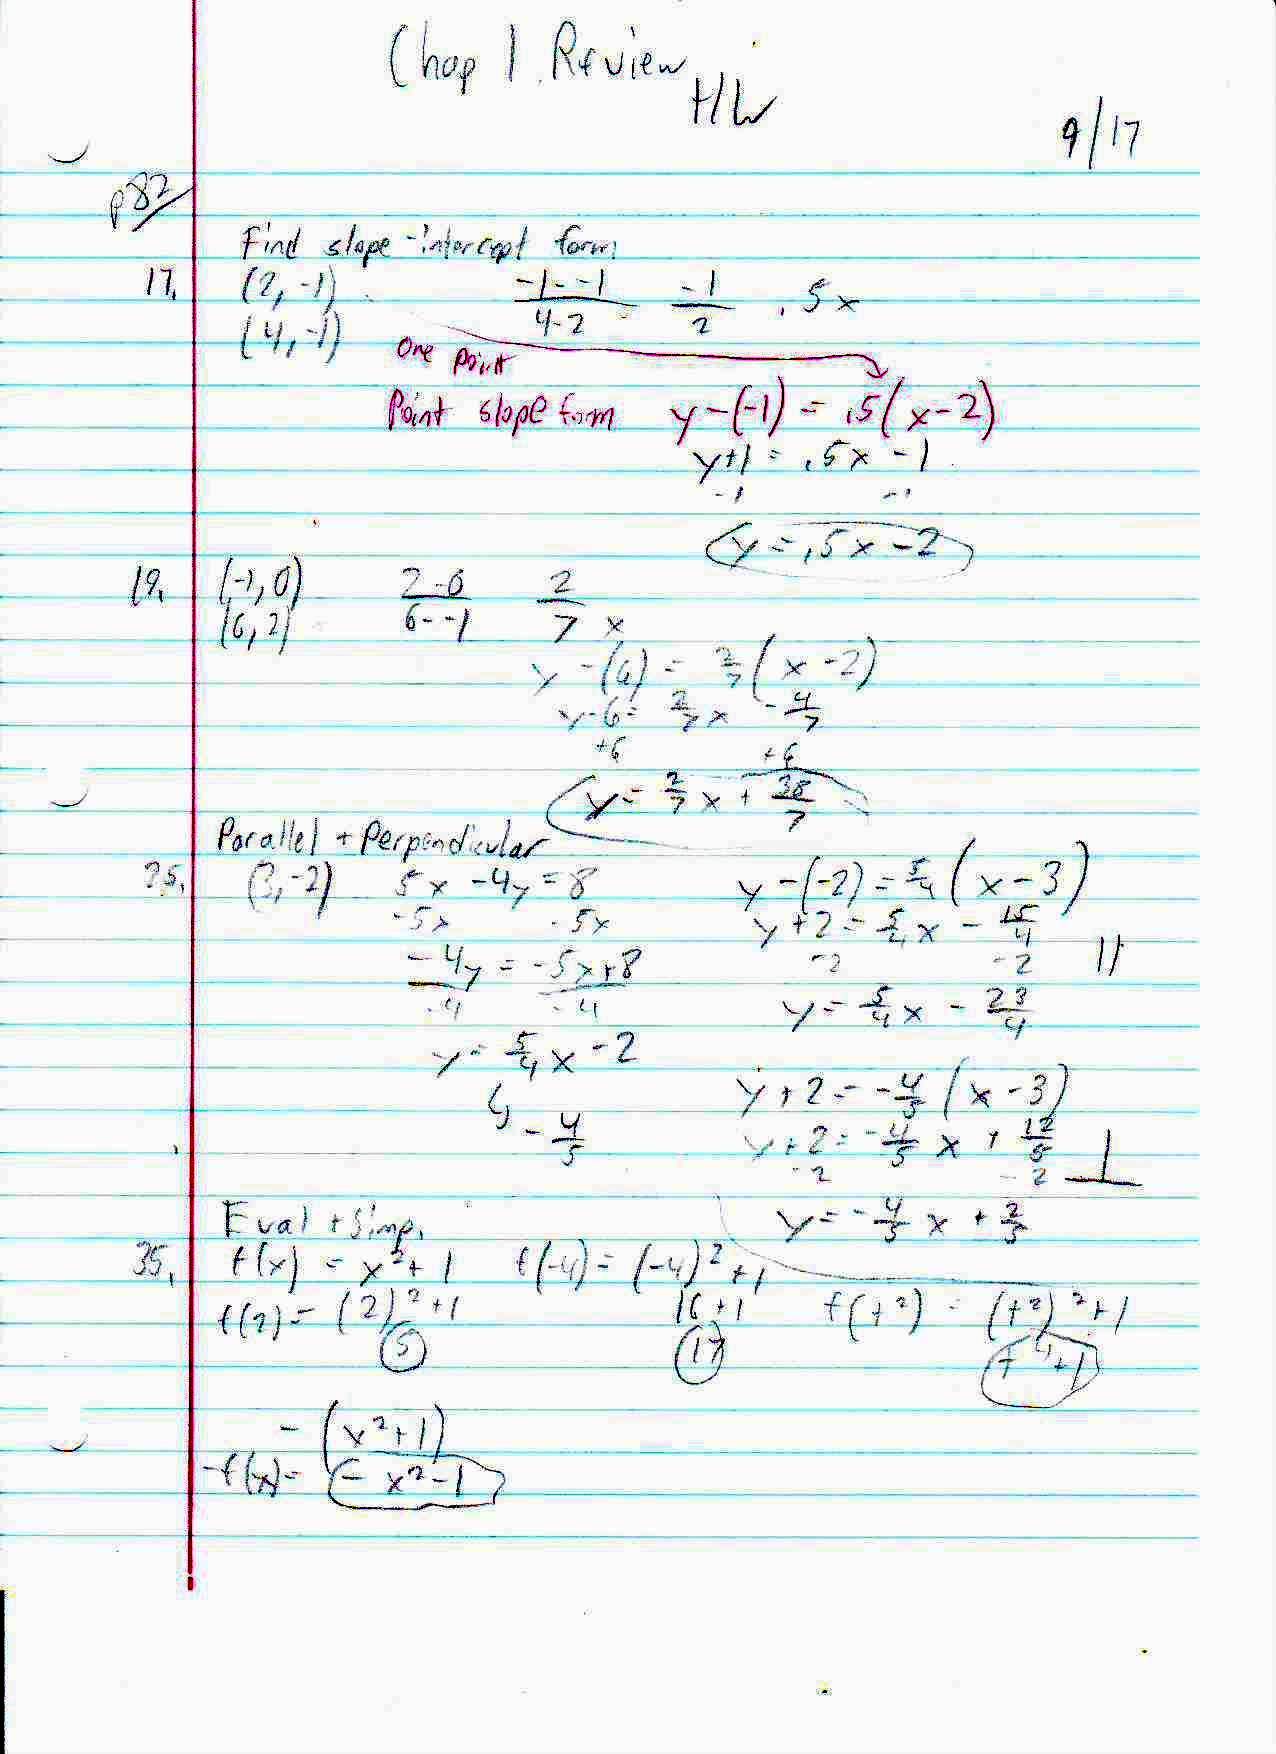 Chap 1 Review
HW
9/17
p82
Find slope-intercept form
17. (2, -1) -1--1/4-2 -1/2 .5x
(4, -1)
one point
Point slope form y-(-1) = .5(x-2)
y+1 = .5x - 1
-1 -1
y = .5x - 2
19. (-1, 0) 2-0/6--1 2/7 x
(6, 2)
y-(6) = 2/7(x-2)
y-6 = 2/7x - 4/7
+6 +6
y = 2/7x + 38/7
Parallel + Perpendicular
25. (3, -2) 5x - 4y = 8 y-(-2) = 5/4(x-3)
-5x -5x y+2 = 5/4x - 15/4
-4y = -5x+8 -2 -2 ||
-4 -4 y = 5/4x - 23/4
y = 5/4x - 2
y+2 = -4/5(x-3)
-4/5 y+2 = -4/5x + 12/5
-2 -2 ⊥
y = -4/5x + 2/5
Eval + Simp.
35. f(x) = x²+1 f(-4) = (-4)²+1
f(2) = (2)²+1 16+1 f(t²) = (t²)²+1
5 17 t⁴+1
-(x²+1)
-f(x) = -x²-1